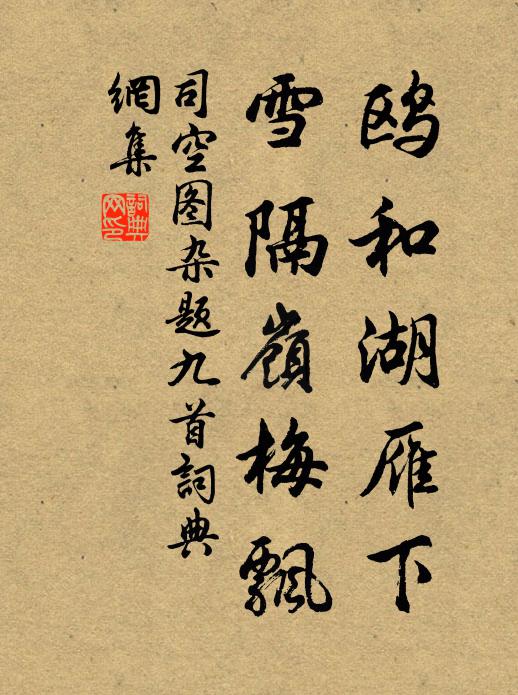 鸥和湖雁下
雪隔嶺梅飄
司空图杂题九首詞典
網集
詞典
网印